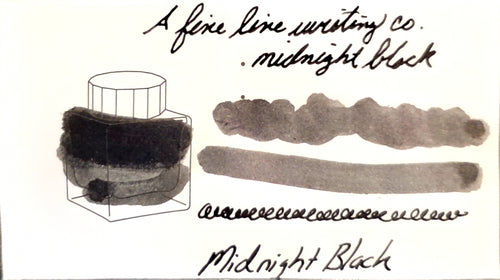 A fine line writing co.
midnight black
Midnight Black